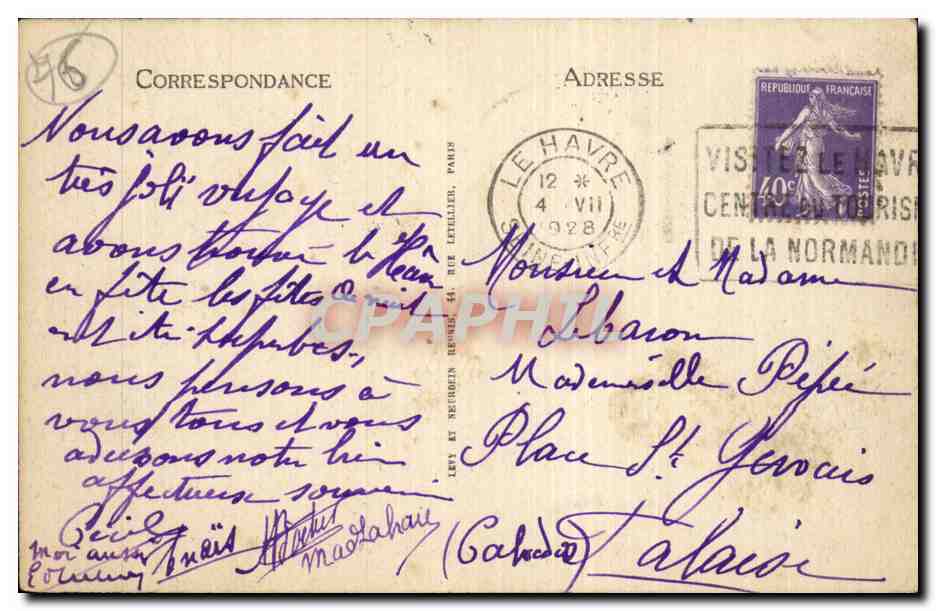 76
CORRESPONDANCE
Nous avons fait un
très joli voyage et
avons trouvé le Hâvre
en fête les fêtes de nuit
ont été superbes,
nous pensons à
vous tous et vous
adressons notre bien
affectueux souvenir
Cécile
Anaïs
moi aussi
LEVY ET NEURDEIN REUNIS, 44, RUE LETELLIER, PARIS
ADRESSE
REPUBLIQUE FRANÇAISE
40c
POSTES
LE HAVRE
12 *
4 VII
1928
SEINE INFRE
VISITEZ LE HAVR
CENTRE DU TOURISM
DE LA NORMANDI
CPAPHIL
Monsieur et Madame
Lebaron
Mademoiselle Pépée
Place St Gervais
Falaise
(Calvados)